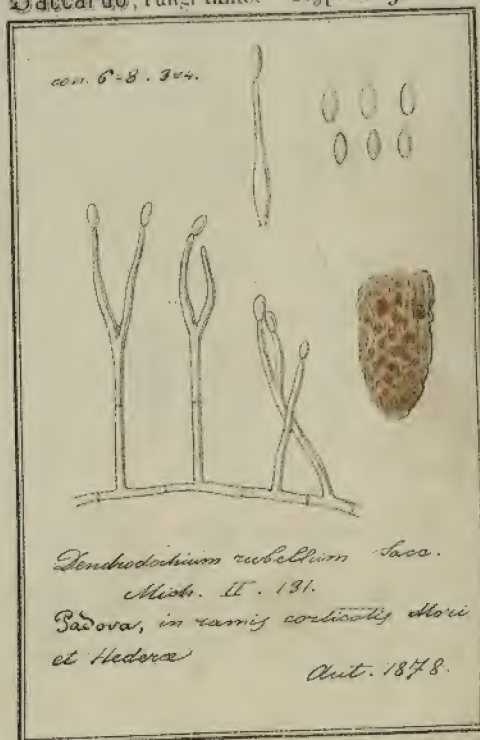 Saccardo, Fungi
con. 6-8. 3=4.
Dendrodochium rubellum Sacc.
Mich. II. 131.
Padova, in ramis corticatis Mori
et Hederæ
Aut. 1878.